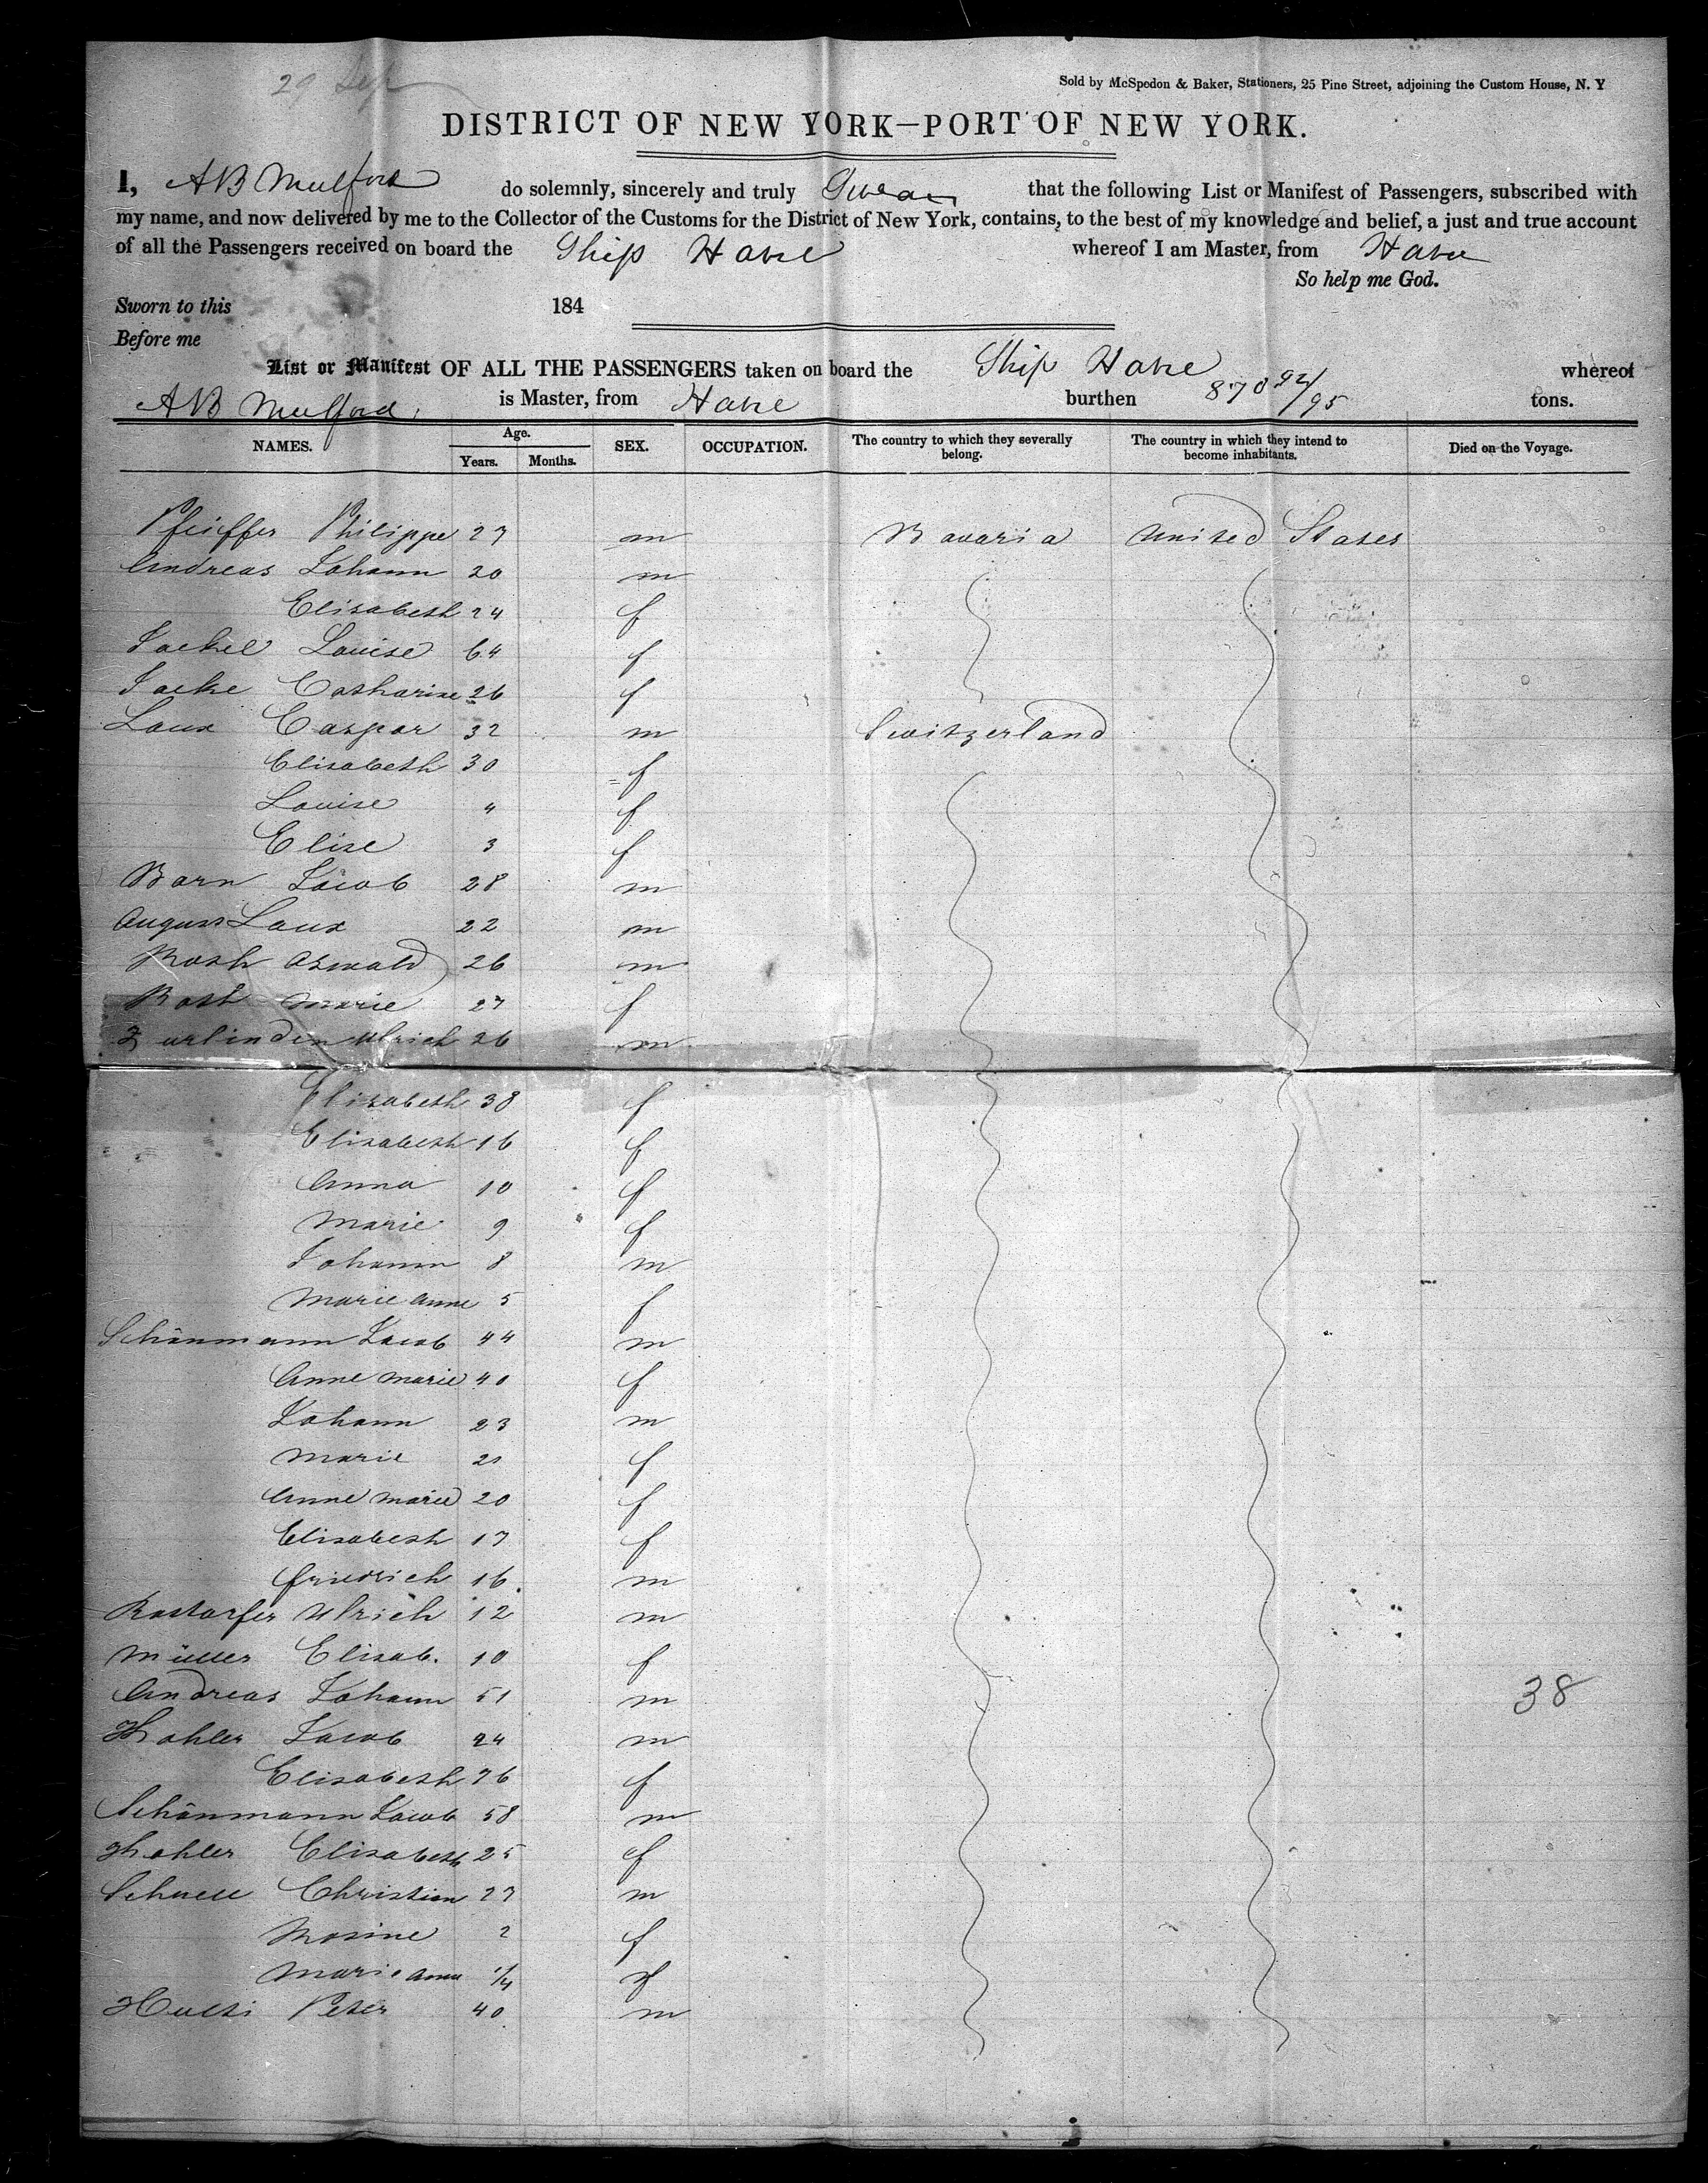 29 Sep
Sold by McSpedon & Baker, Stationers, 25 Pine Street, adjoining the Custom House, N. Y
DISTRICT OF NEW YORK—PORT OF NEW YORK.
I, AB Mulford do solemnly, sincerely and truly Swear that the following List or Manifest of Passengers, subscribed with
my name, and now delivered by me to the Collector of the Customs for the District of New York, contains, to the best of my knowledge and belief, a just and true account
of all the Passengers received on board the Ship Havre whereof I am Master, from Havre
So help me God.
Sworn to this 184
Before me
List or Manifest OF ALL THE PASSENGERS taken on board the Ship Havre whereof
AB Mulford, is Master, from Havre burthen 870 92/95 tons.
NAMES. Age. Years. Months. SEX. OCCUPATION. The country to which they severally belong. The country in which they intend to become inhabitants. Died on the Voyage.
Pfeiffer Philippe 27 m Bavaria United States
Andreas Johann 20 m
Elisabeth 24 f
Jackel Louise 64 f
Jacke Catharine 26 f
Laux Caspar 32 m Switzerland
Elisabeth 30 f
Louise 4 f
Elise 3 f
Born Jacob 28 m
August Laux 22 m
Roth Oswald 26 m
Roth Marie 27 f
Zurlinden Ulrich 26 m
Elisabeth 38 f
Elisabeth 16 f
Anna 10 f
Marie 9 f
Johann 8 m
Marie Anne 5 f
Schönmann Jacob 44 m
Anne Marie 40 f
Johann 23 m
Marie 21 f
Anne Marie 20 f
Elisabeth 17 f
Friedrich 16 m
Ulrich 12 m
Müller Elisab. 10 f
Andreas Johann 51 m 38
Kohler Jacob 24 m
Elisabeth 76 f
Schönmann Jacob 58 m
Kohler Elisabeth 25 f
Schnell Christian 27 m
Rosine 2 f
Marie Anna 1/4 f
Peter 40 m